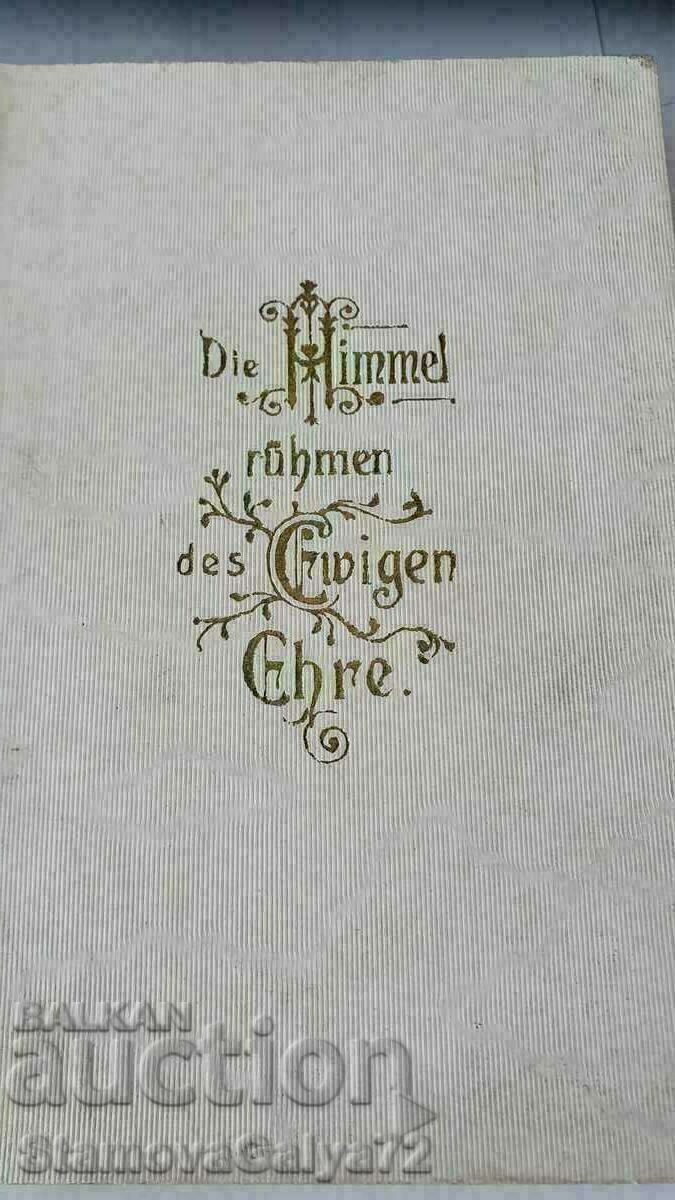 Die Himmel
rühmen
des Ewigen
Ehre.
BALKAN
auction
StamovaGalya72